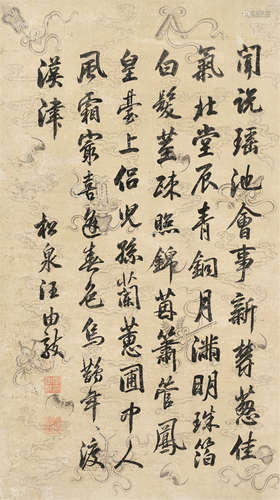 聞說瑶池會事新鬱蔥佳
氣北堂辰青銅月滿明珠箔
白髮莖疎照錦茵簫管鳳
皇臺上侶兒孫蘭蕙圃中人
風霜喜逢春色烏鵲年〻渡
漢津
松泉汪由敦